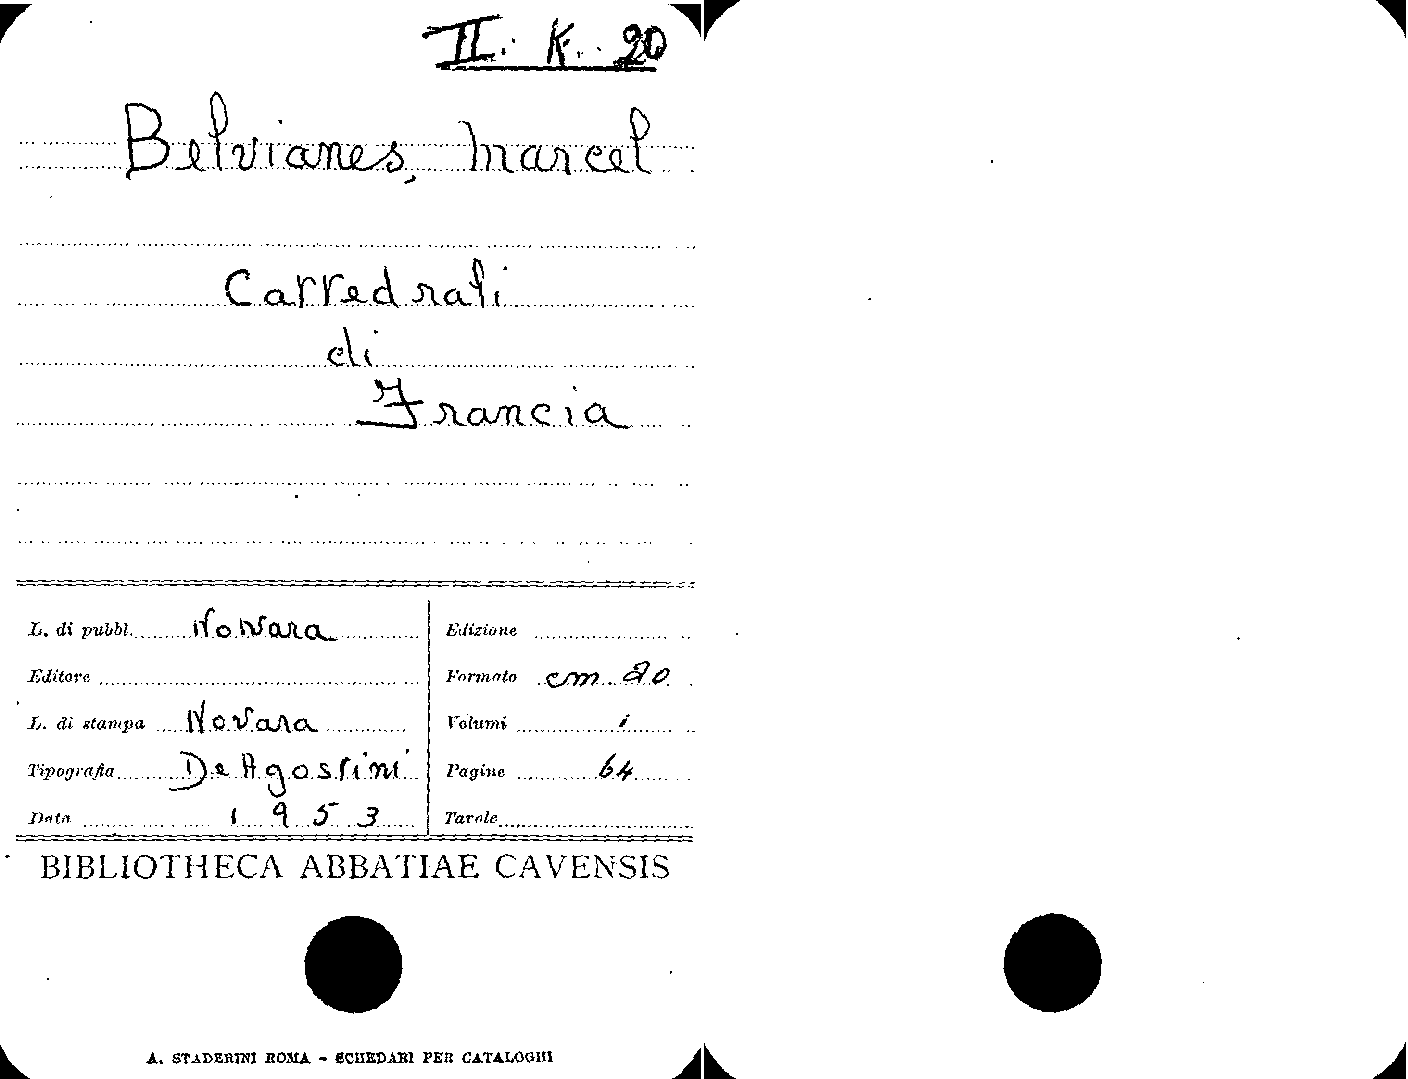 II. K. 20
Belvianes, Marcel
Cattedrali
di
Francia
L. di pubbl. Novara
Edizione
Editore
Formato cm 20
L. di stampa Novara
Volumi 1
Tipografia De Agostini
Pagine 64
Data 1953
Tavole
BIBLIOTHECA ABBATIAE CAVENSIS
A. STADERINI ROMA - SCHEDARI PER CATALOGHI